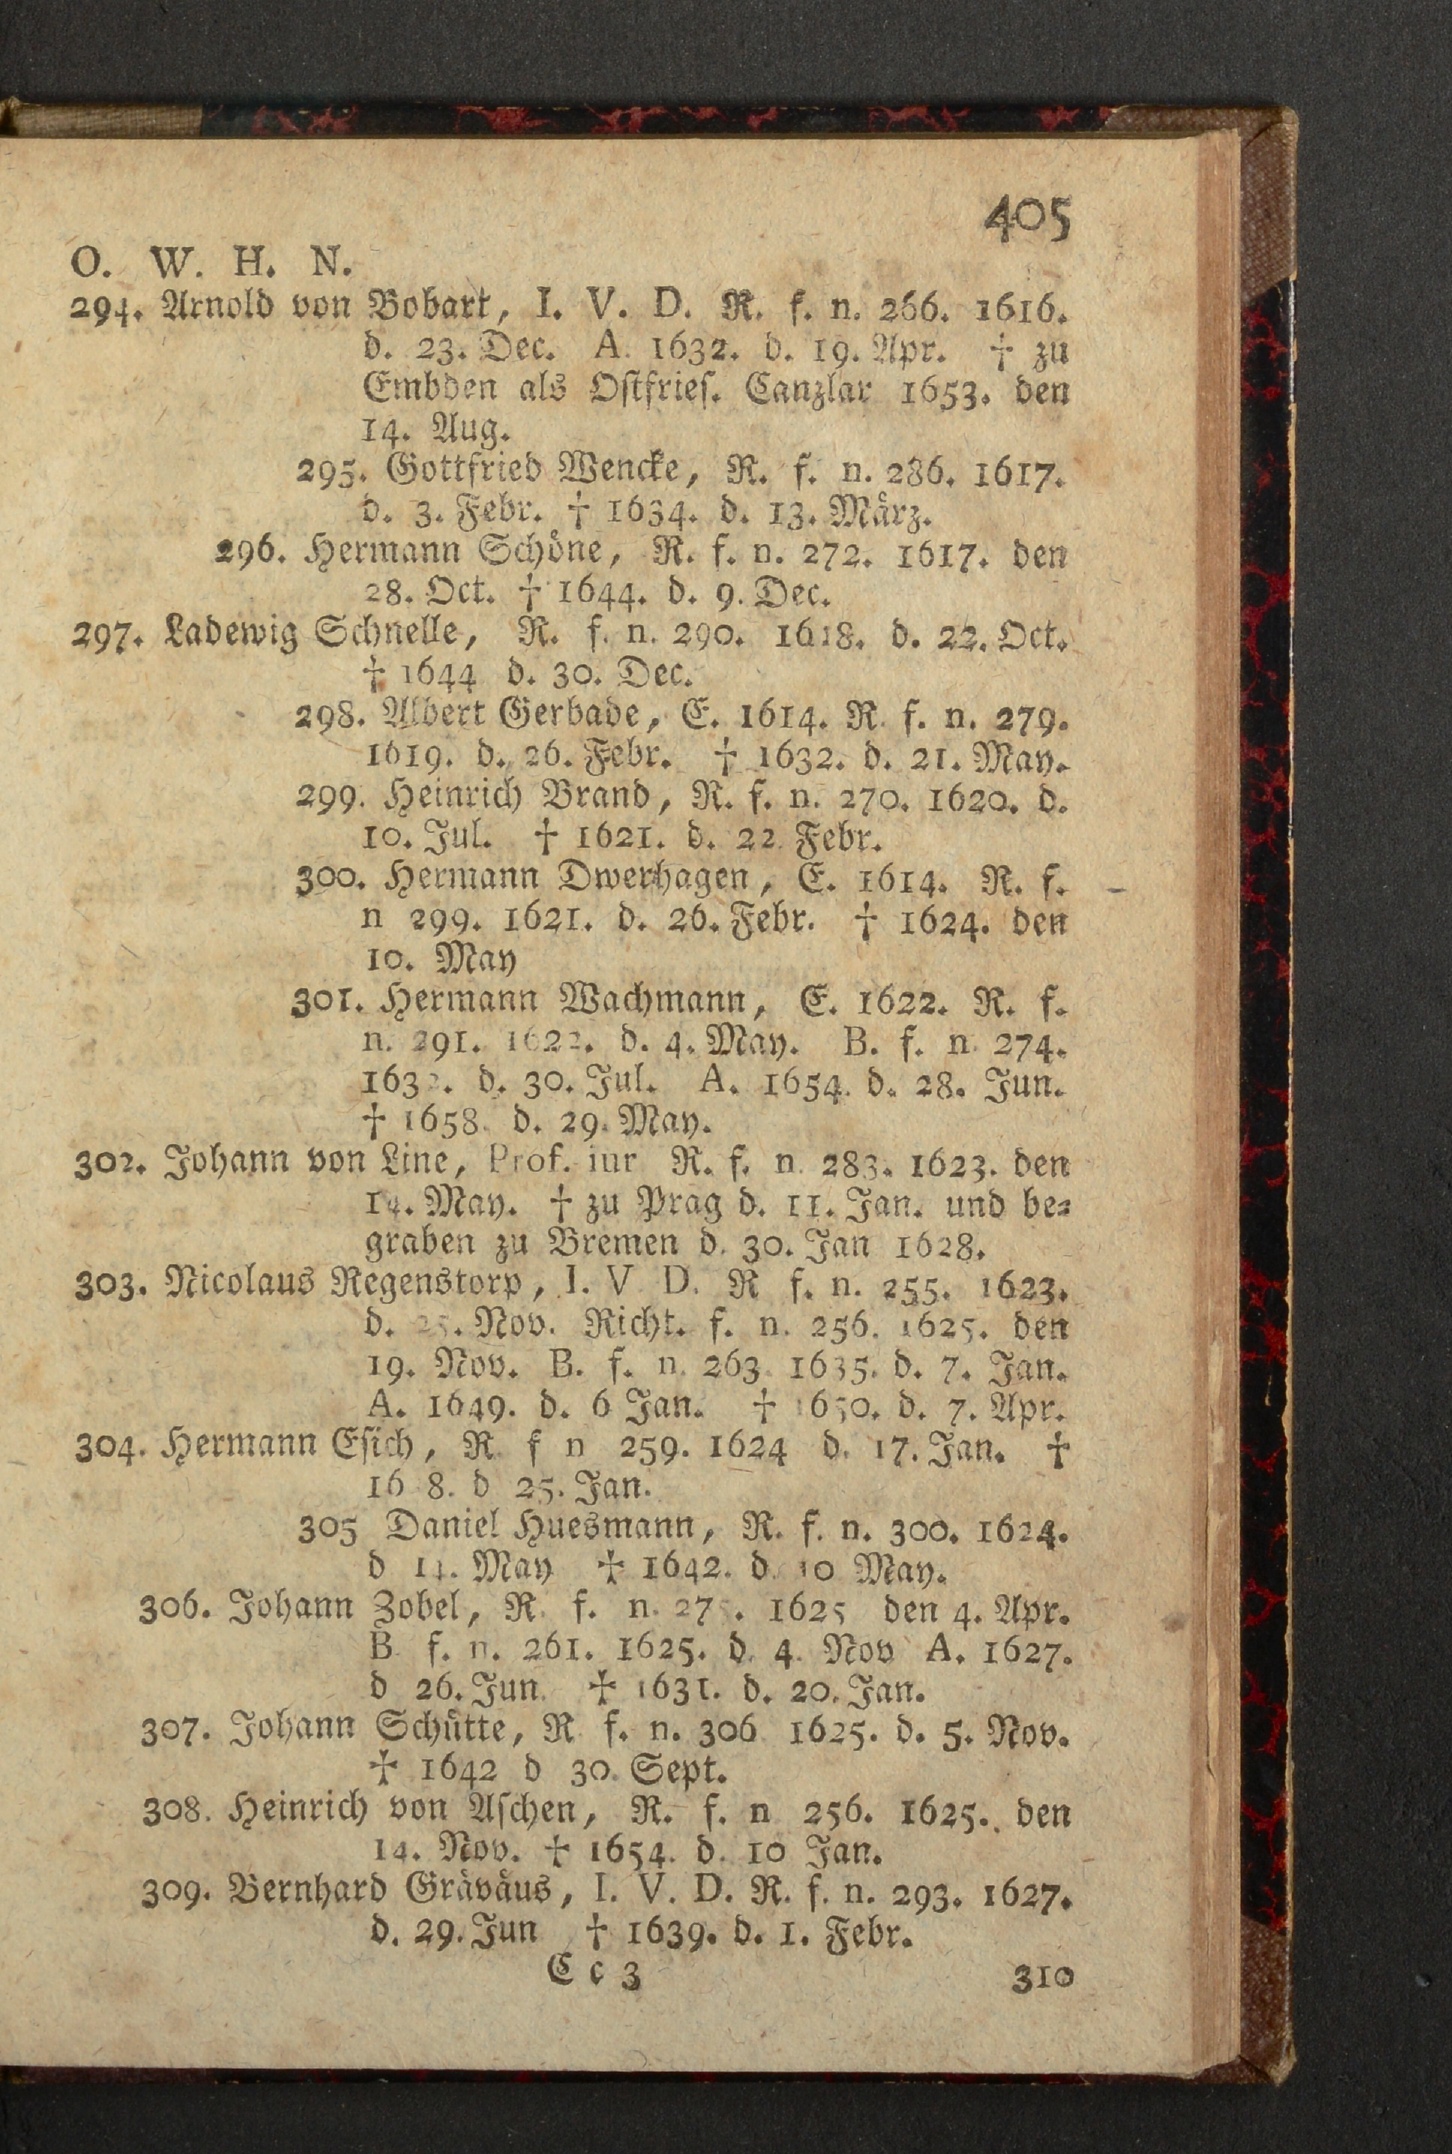 405
O. W. H. N.
294. Arnold von Bobart, I. V. D. R. f. n. 266. 1616.
d. 23. Dec. A. 1632. d. 19. Apr. † zu
Embden als Ostfries. Canzlar 1653. den
14. Aug.
295. Gottfried Wencke, R. f. n. 286. 1617.
d. 3. Febr. † 1634. d. 13. März.
296. Hermann Schöne, R. f. n. 272. 1617. den
28. Oct. † 1644. d. 9. Dec.
297. Ladewig Schnelle, R. f. n. 290. 1618. d. 22. Oct.
† 1644 d. 30. Dec.
298. Albert Gerbade, E. 1614. R. f. n. 279.
1619. d. 26. Febr. † 1632. d. 21. May.
299. Heinrich Brand, R. f. n. 270. 1620. d.
10. Jul. † 1621. d. 22. Febr.
300. Hermann Dwerhagen, E. 1614. R. f.
n 299. 1621. d. 26. Febr. † 1624. den
10. May
301. Hermann Wachmann, E. 1622. R. f.
n. 291. 1622. d. 4. May. B. f. n. 274.
d. 30. Jul. A. 1654. d. 28. Jun.
† 1658. d. 29. May.
302. Johann von Line, Prof. iur R. f. n. 283. 1623. den
14. May. † zu Prag d. 11. Jan. und be-
graben zu Bremen d. 30. Jan 1628.
303. Nicolaus Regenstorp, I. V D. R f. n. 255. 1623.
d. 25. Nov. Richt. f. n. 256. 1625. den
19. Nov. B. f. n. 263. 1635. d. 7. Jan.
A. 1649. d. 6 Jan. † 1650. d. 7. Apr.
304. Hermann Esich, R f n 259. 1624 d. 17. Jan. †
d 25. Jan.
305 Daniel Huesmann, R. f. n. 300. 1624.
d 14. May † 1642. d. 10 May.
306. Johann Zobel, R. f. n. 1625 den 4. Apr.
B f. n. 261. 1625. d. 4. Nov A. 1627.
d 26. Jun. † 1631. d. 20. Jan.
307. Johann Schütte, R f. n. 306 1625. d. 5. Nov.
† 1642 d 30. Sept.
308. Heinrich von Aschen, R. f. n 256. 1625. den
14. Nov. † 1654. d. 10 Jan.
309. Bernhard Gräväus, I. V. D. R. f. n. 293. 1627.
d. 29. Jun † 1639. d. 1. Febr.
C c 3 310